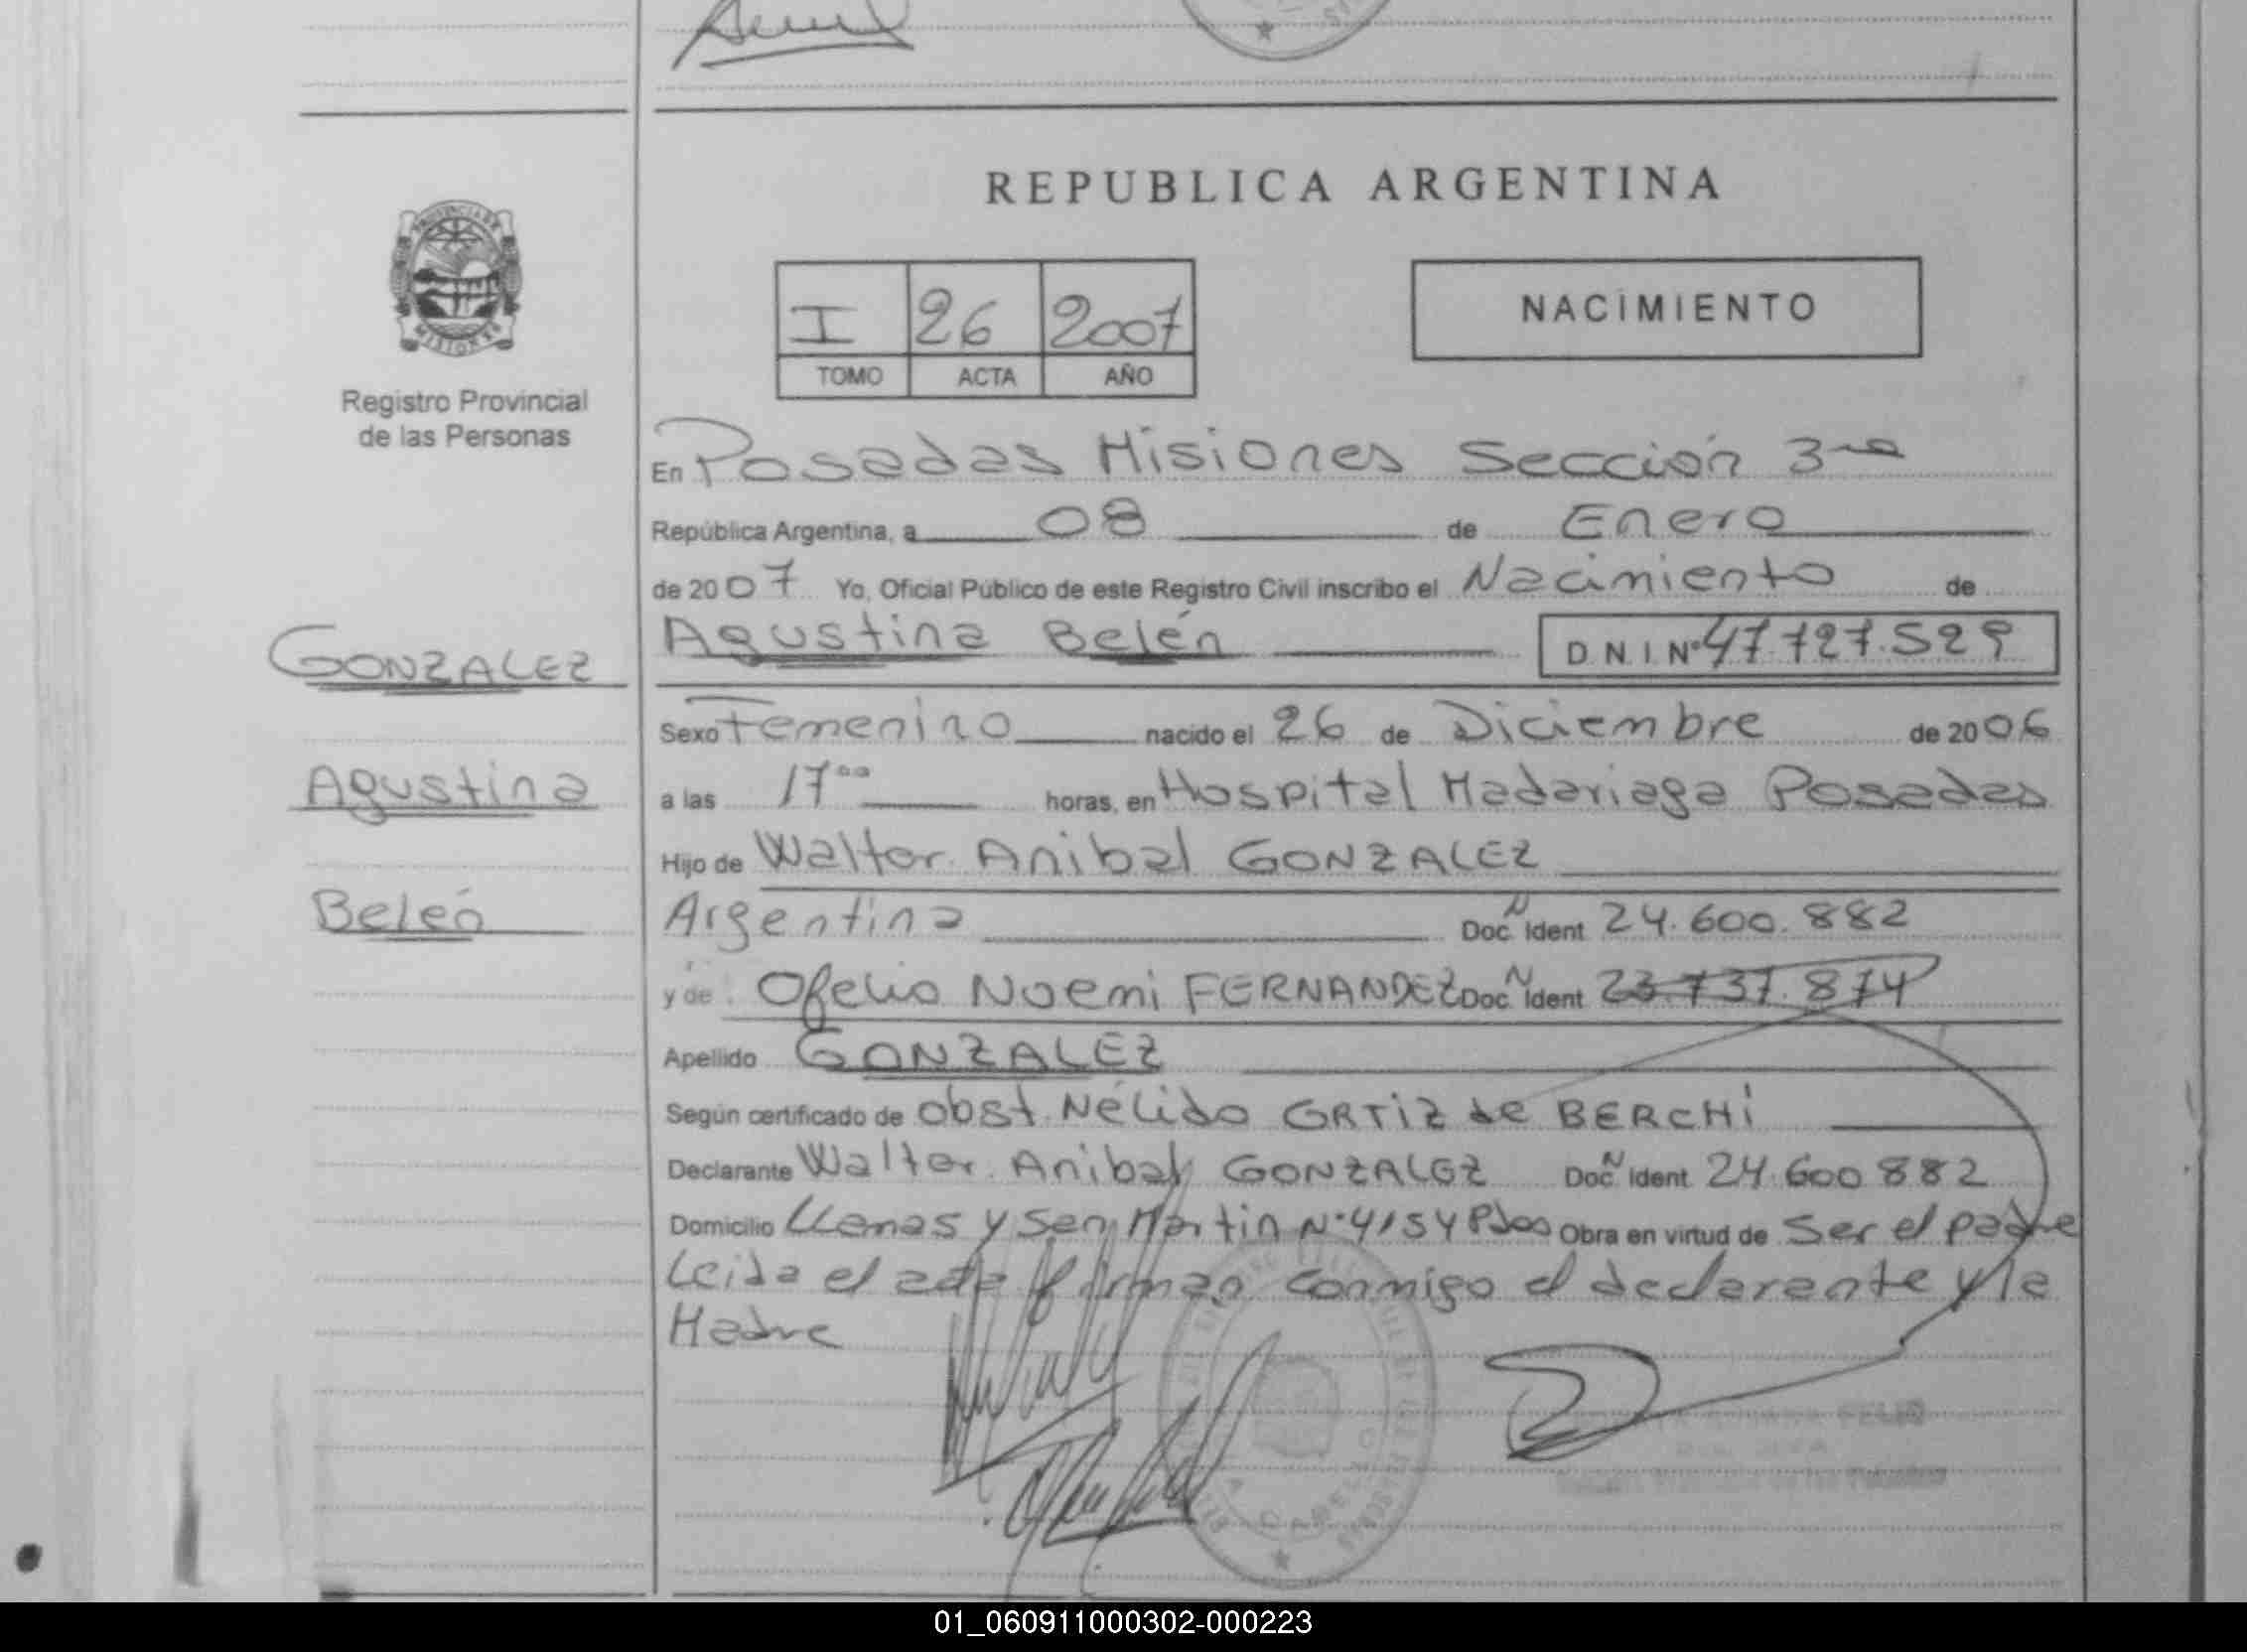 REPUBLICA ARGENTINA
PROVINCIA DE
MISIONES
Registro Provincial
de las Personas
I 26 2007
TOMO ACTA AÑO
NACIMIENTO
En Posadas Misiones Sección 3ra
República Argentina, a 08 de Enero
de 2007 Yo, Oficial Público de este Registro Civil inscribo el Nacimiento de
GONZALEZ
Agustina Belén D N I Nº 47.727.529
Sexo Femenino nacido el 26 de Diciembre de 2006
Agustina
a las 17 00 horas, en Hospital Madariaga Posadas
Hijo de Walter Anibal GONZALEZ
Belén
Argentina Doc. N Ident 24.600.882
y de Ofelia Noemi FERNANDEZ Doc. N Ident 23.737.874
Apellido GONZALEZ
Según certificado de obst. Nélida ORTIZ de BERCHI
Declarante Walter Anibal GONZALEZ Doc. N Ident 24.600.882
Domicilio LLamas y San Martin Nº 4154 Pdas Obra en virtud de Ser el padre
Leida el acta firman conmigo el declarante y la
Madre
01_060911000302-000223